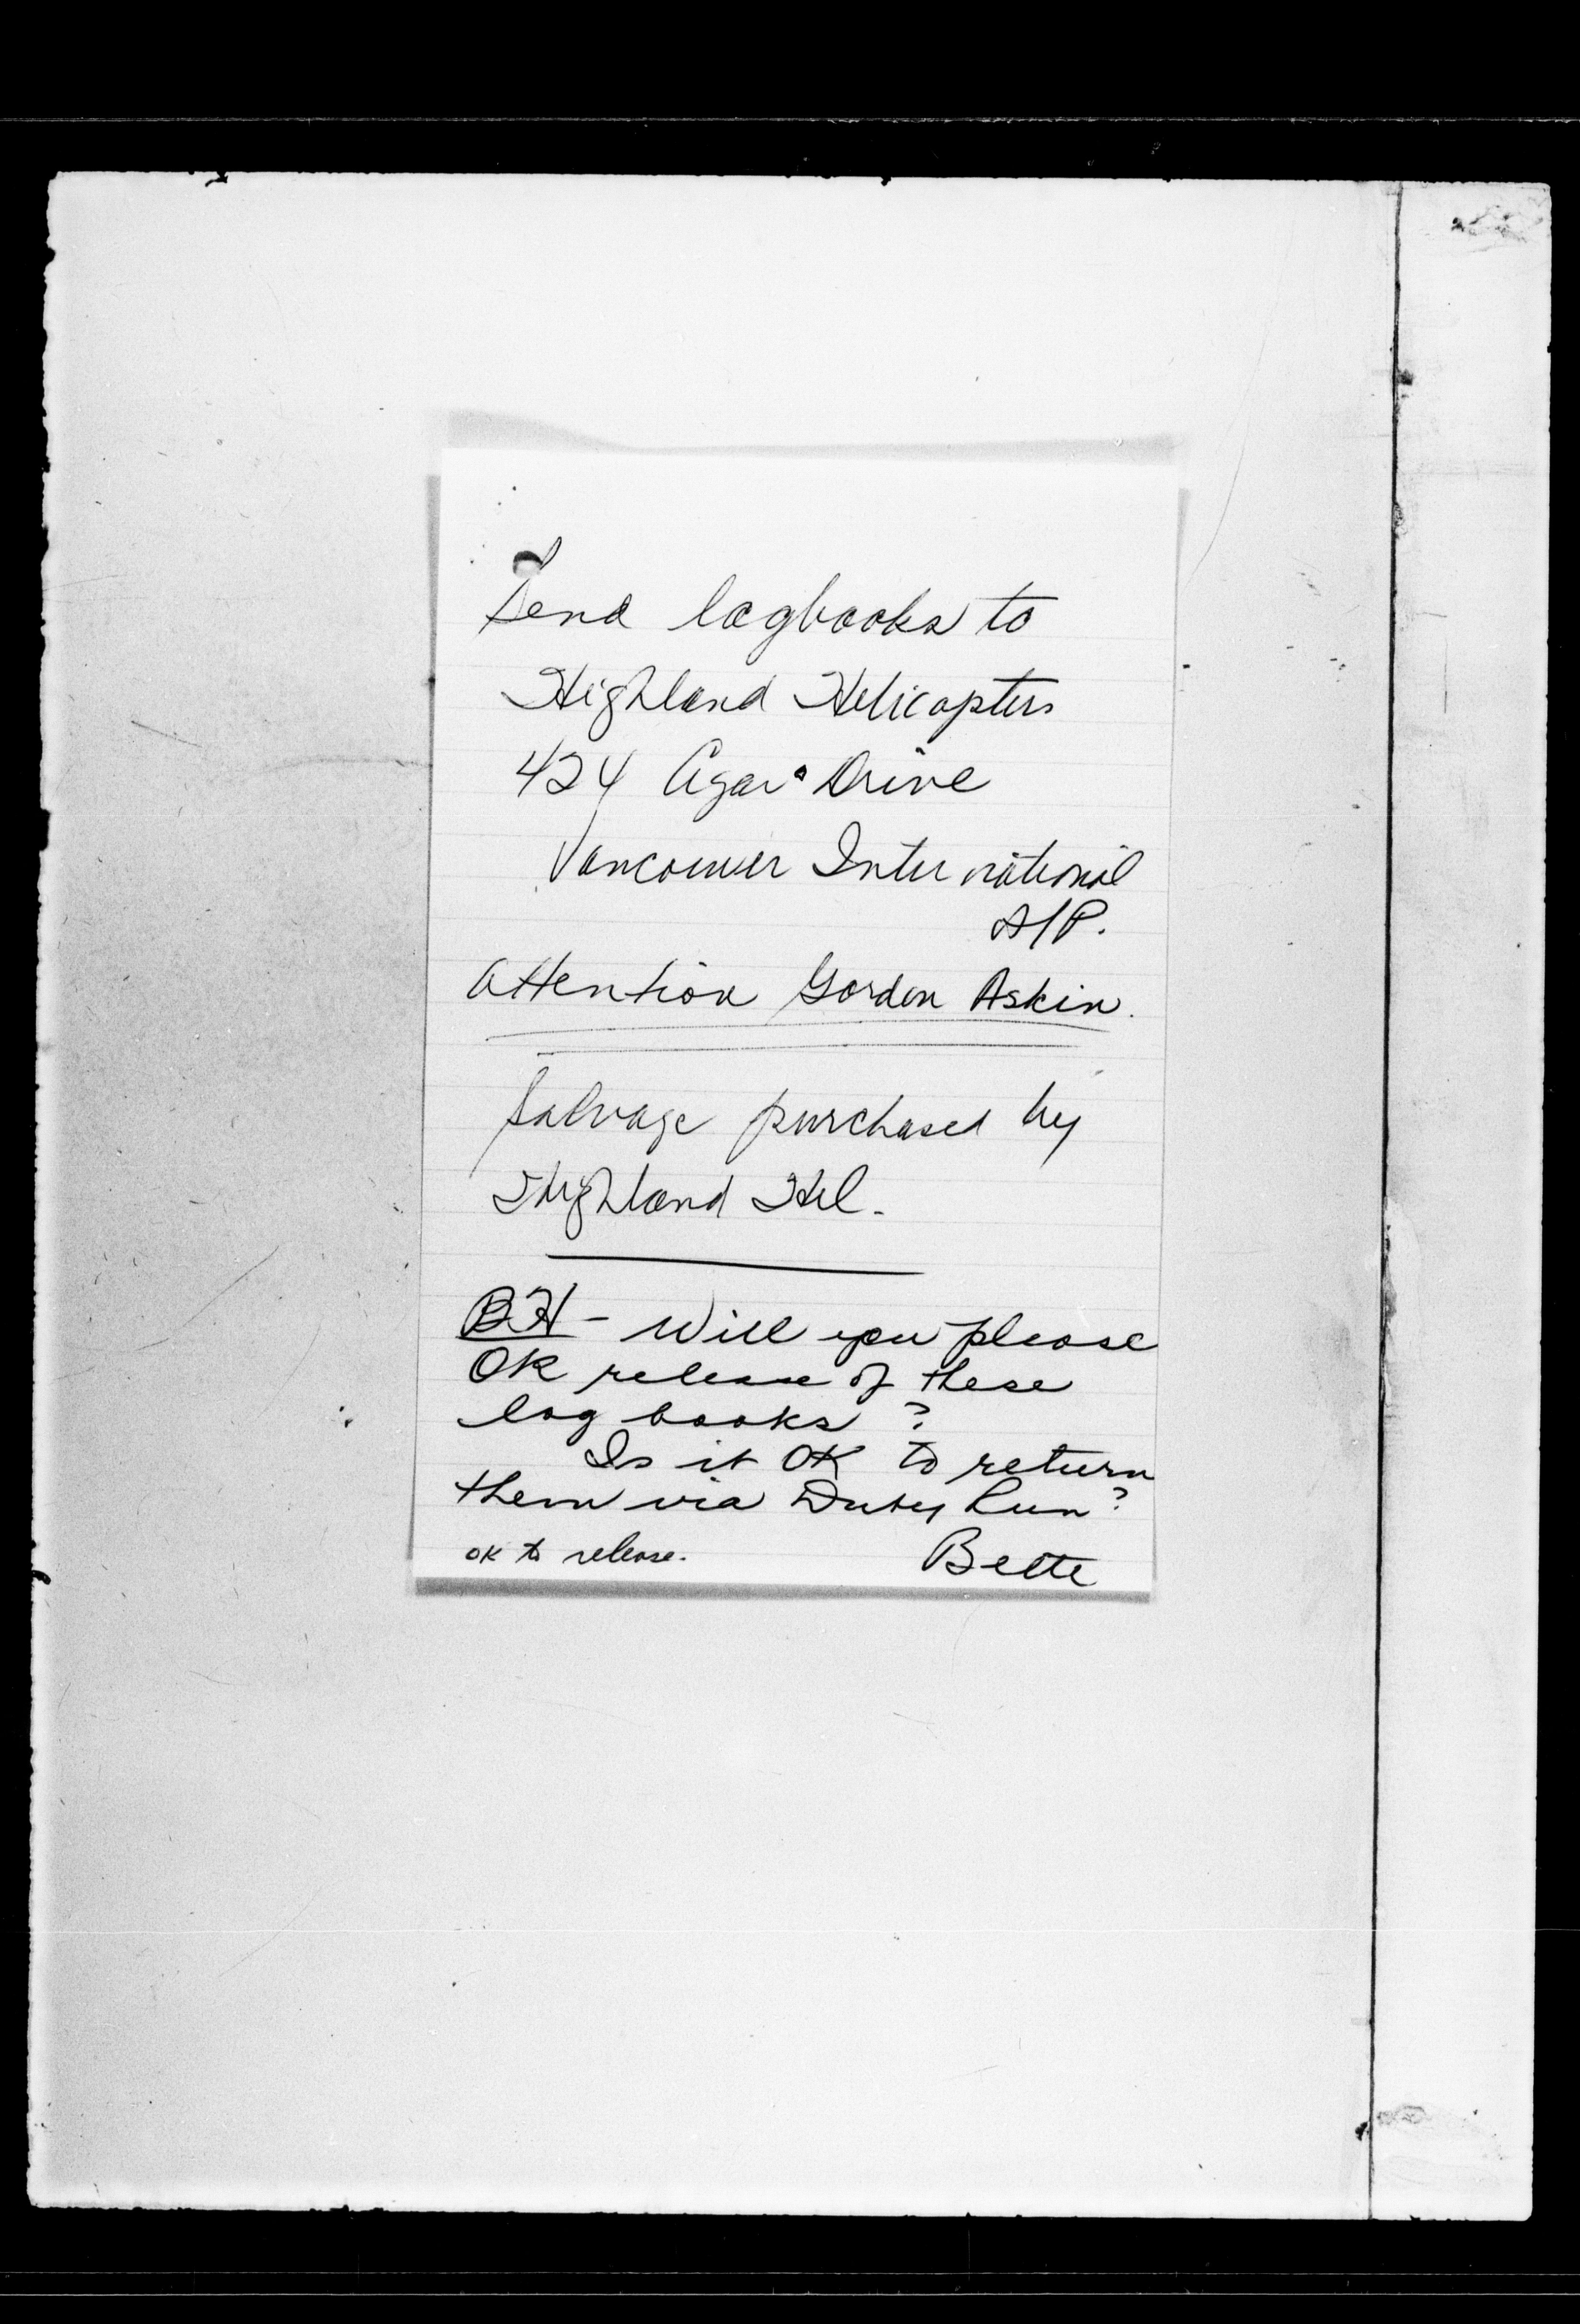 Send logbooks to
Highland Helicopters
424 Agar Drive
Vancouver International
A/P.
Attention Gordon Askin.
Salvage purchased by
Highland Hel.
BH - Will you please
OK release of these
log books?
Is it OK to return
them via Duty Run?
OK to release.
Bette